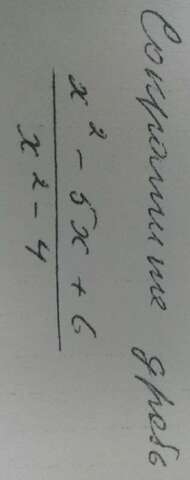 Сократите дробь
x² - 5x + 6
x² - 4